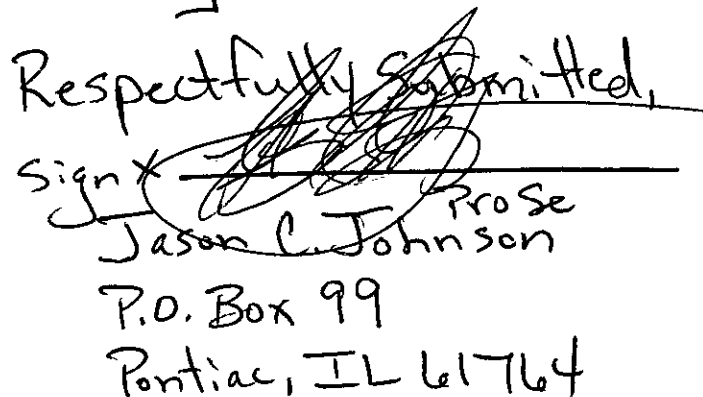 Respectfully Submitted,
Sign X
Pro Se
Jason C. Johnson
P.O. Box 99
Pontiac, IL 61764